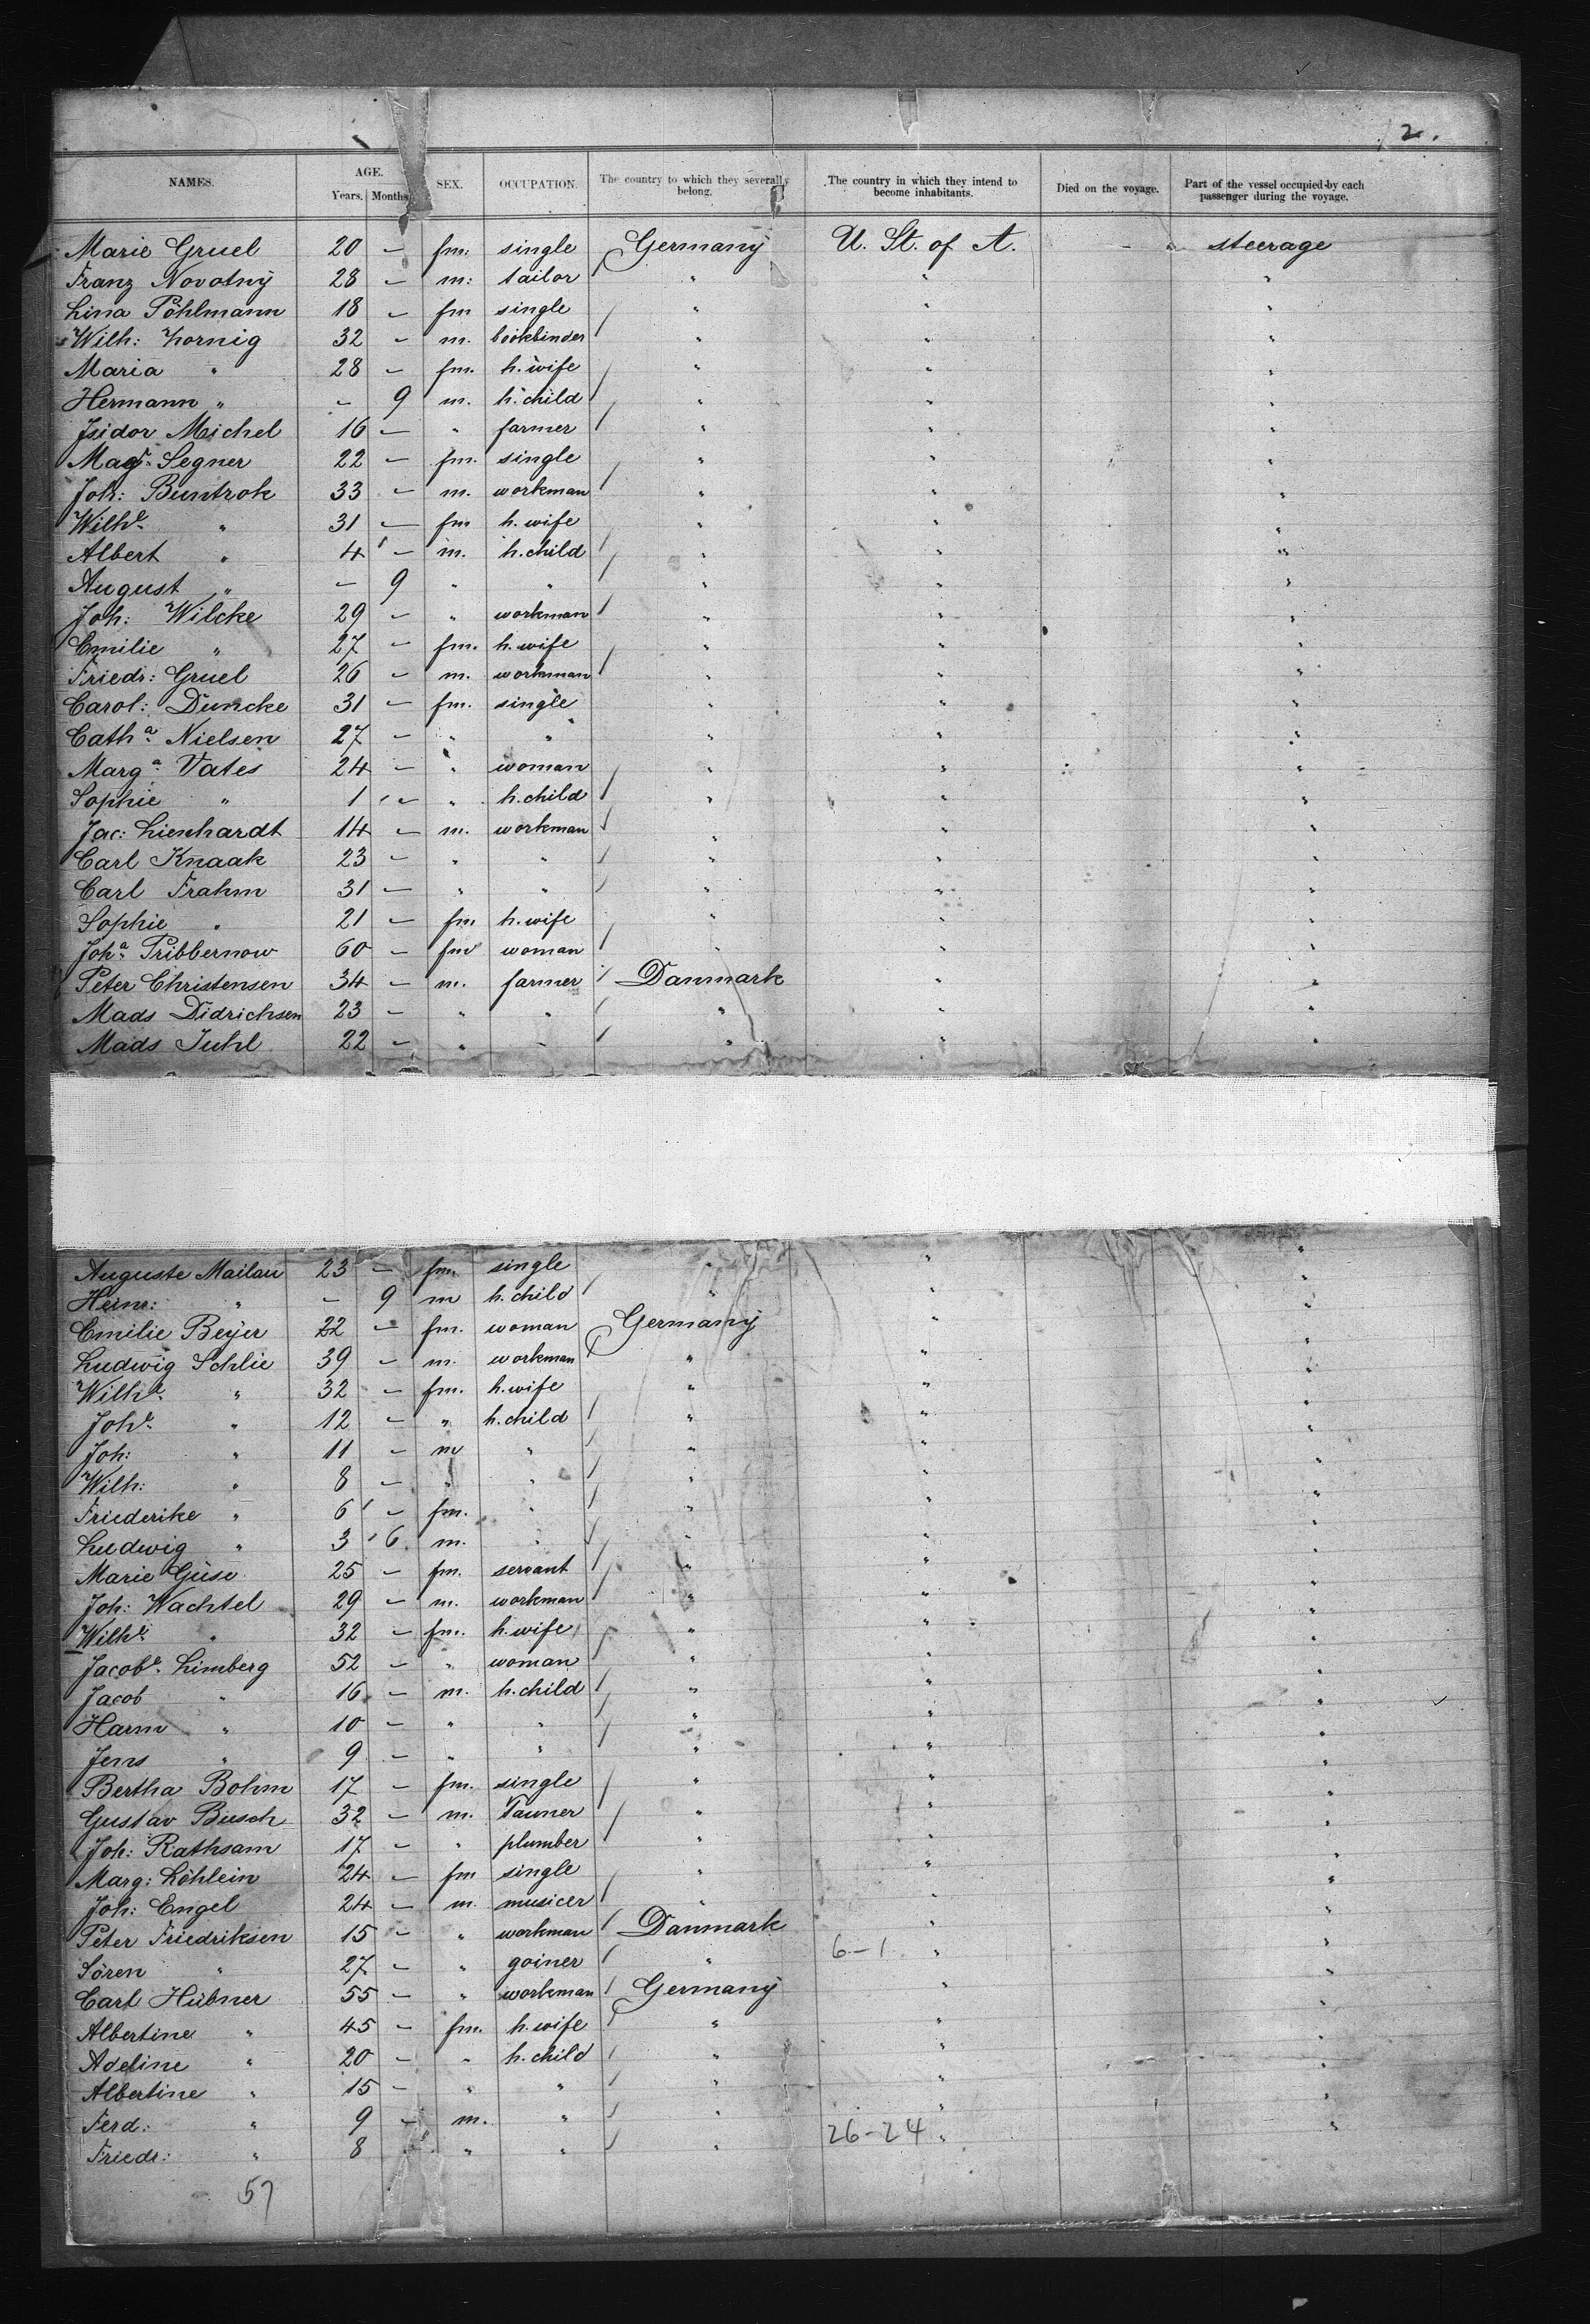 2.
NAMES. AGE. Years. Months SEX. OCCUPATION. The country to which they severally belong. The country in which they intend to become inhabitants. Died on the voyage. Part of the vessel occupied by each passenger during the voyage.
Marie Gruel 20 – fm. single Germany U. St. of A. – " steerage
Franz Novotny 28 – m: tailor " " "
Lina Pöhlmann 18 – fm single " " "
Wilh: Hornig 32 – m. bookbinder " " "
Maria " 28 – fm. h. wife " " "
Hermann " – 9 m. h. child " " "
Isidor Michel 16 – " farmer " " "
Magd. Segner 22 – fm. single " " "
Joh: Buntrok 33 – m. workman " " "
Wilhe. " 31 – fm h. wife " " "
Albert " 4 – m. h. child " " "
August " – 9 " " " " "
Joh: Wilcke 29 – " workman " " "
Emilie " 27 – fm. h. wife " " "
Friedr: Gruel 26 – m. workman " " "
Carol: Duncke 31 – fm. single " " "
Catha. Nielsen 27 – " " " " "
Marga. Vates 24 – " woman " " "
Sophie " 1 – " h. child " " "
Jac: Lienhardt 14 – m. workman " " "
Carl Knaak 23 – " " " " "
Carl Frahm 31 – " " " " "
Sophie " 21 – fm h. wife " " "
Joha. Pribbernow 60 – fm woman " " "
Peter Christensen 34 – m. farmer Danmark " "
Mads Didrichsen 23 – " " " " "
Mads Juhl 22 – " " " " "
Auguste Mailau 23 – fm. single " " "
Heinr: " – 9 m h. child " " "
Emilie Beyer 22 – fm. woman Germany " "
Ludwig Schlie 39 – m. workman " " "
Wilhe. " 32 – fm. h. wife " " "
Johe. " 12 – " h. child " " "
Joh: " 11 – m " " " "
Wilh: " 8 – " " " " "
Friederike " 6 – fm. " " " "
Ludwig " 3 6 m. " " " "
Marie Güse 25 – fm. servant " " "
Joh: Wachtel 29 – m. workman " " "
Wilhe. " 32 – fm. h. wife " " "
Jacobe. Limberg 52 – " woman " " "
Jacob " 16 – m. h. child " " "
Harm " 10 – " " " " "
Jens " 9 – " " " " "
Bertha Bohm 17 – fm. single " " "
Gustav Busch 32 – m. Tanner " " "
Joh: Rathsam 17 – " plumber " " "
Marg: Löhlein 24 – fm single " " "
Joh: Engel 24 – m. musicer " " "
Peter Friedriksen 15 – " workman Danmark " "
Sören " 27 – " goiner " 6-1 " "
Carl Hübner 55 – " workman Germany " "
Albertine " 45 – fm. h. wife " " "
Adeline " 20 – " h. child " " "
Albertine " 15 – " " " " "
Ferd: " 9 – m. " " " "
Friedr: " 8 " " " 26-24 " "
57